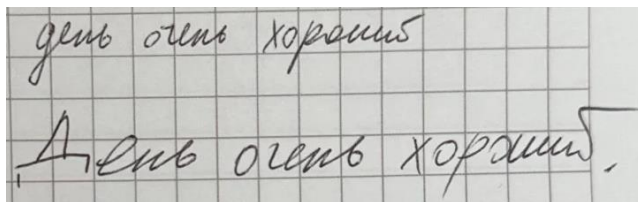 день очень хороший
День очень хороший.